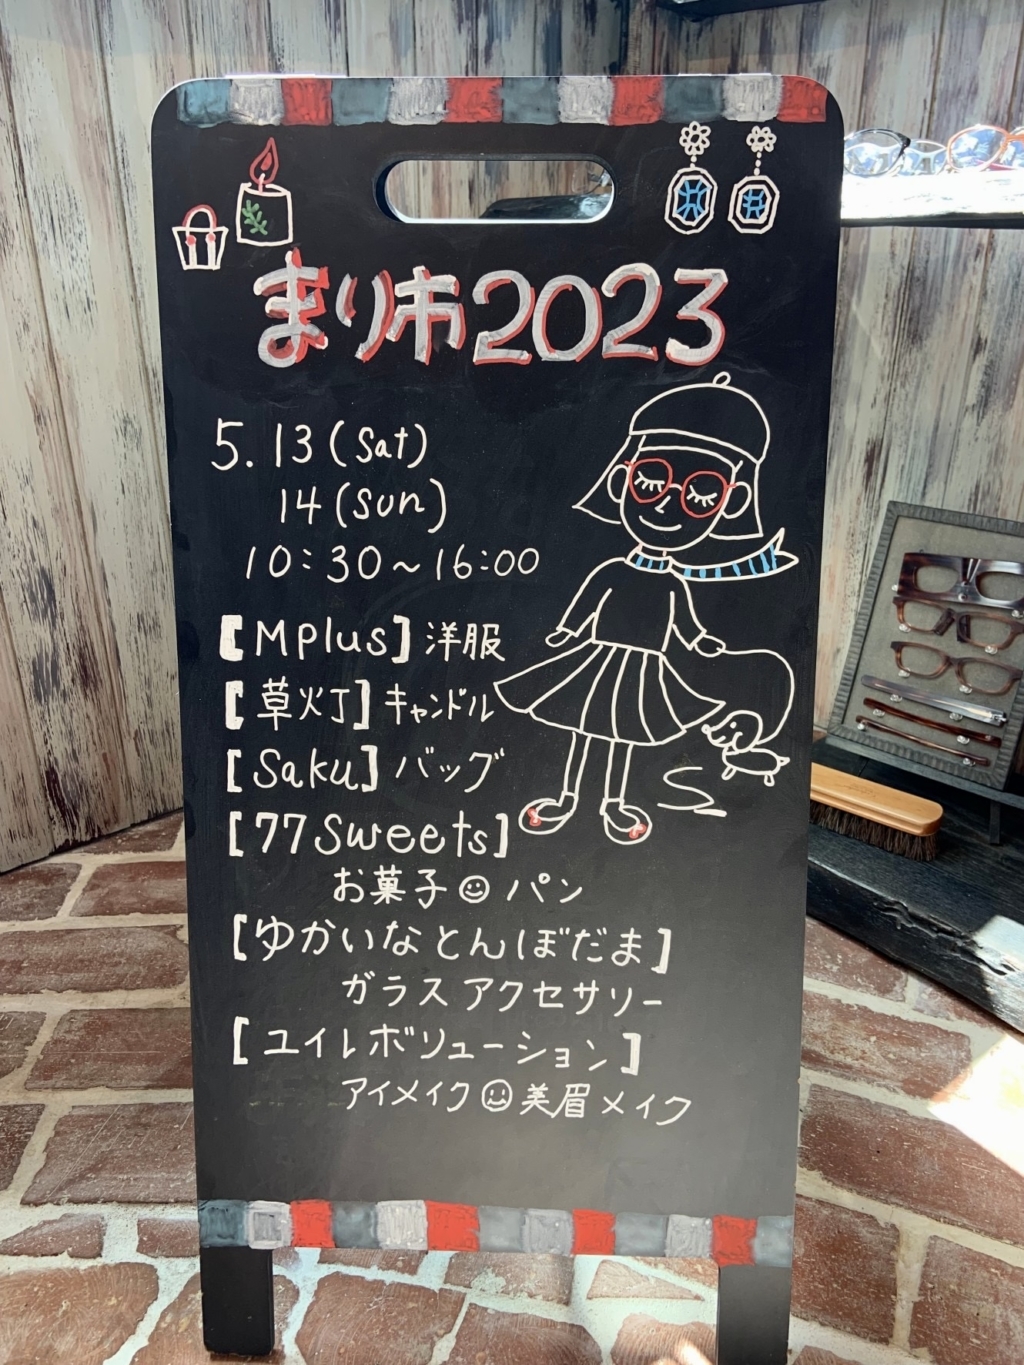 まり市2023
5.13(Sat)
14(Sun)
10:30~16:00
【Mplus】洋服
【草火丁】キャンドル
[Saku]バッグ
[77Sweets]
お菓子☺パン
[ゆかいなとんぼだま]
ガラスアクセサリー
[ユイレボリューション]
アイメイク☺美眉メイク